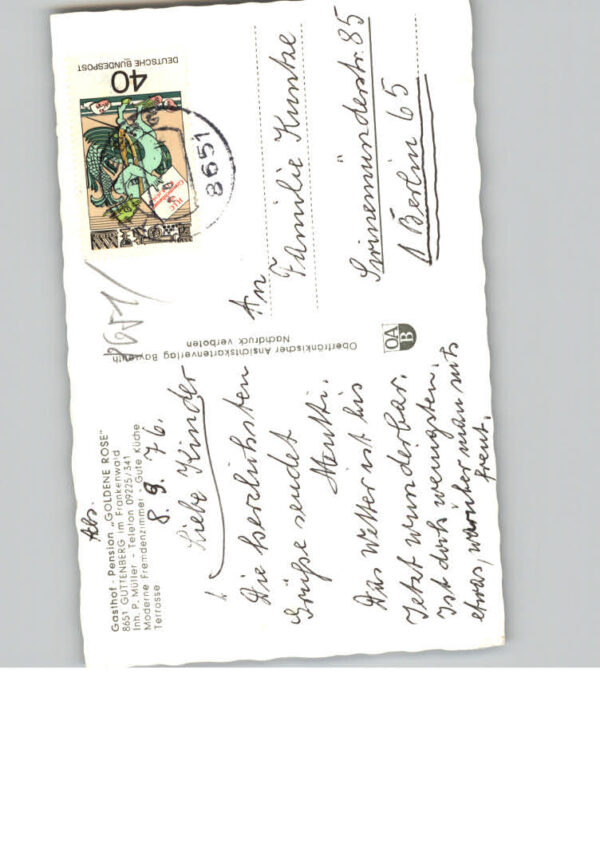 Gasthof - Pension „GOLDENE ROSE"
8651 GUTTENBERG im Frankenwald
Inh. P. Müller - Telefon 09225/341
Moderne Fremdenzimmer - Gute Küche
Terrasse
Abs.
8. 9. 76.
Liebe Kinder
Die herzlichsten
Grüße sendet
Mutti.
Das Wetter ist bis
Jetzt wunderbar.
Ist doch wenigsten
etwas, worüber man sich
freut.
Oberfränkischer Ansichtskartenverlag Bayreuth
Nachdruck verboten
OA
B
DEUTSCHE BUNDESPOST
40
8651
8651
An
Familie Kuntze
Swinemünderstr. 85
1 Berlin 65